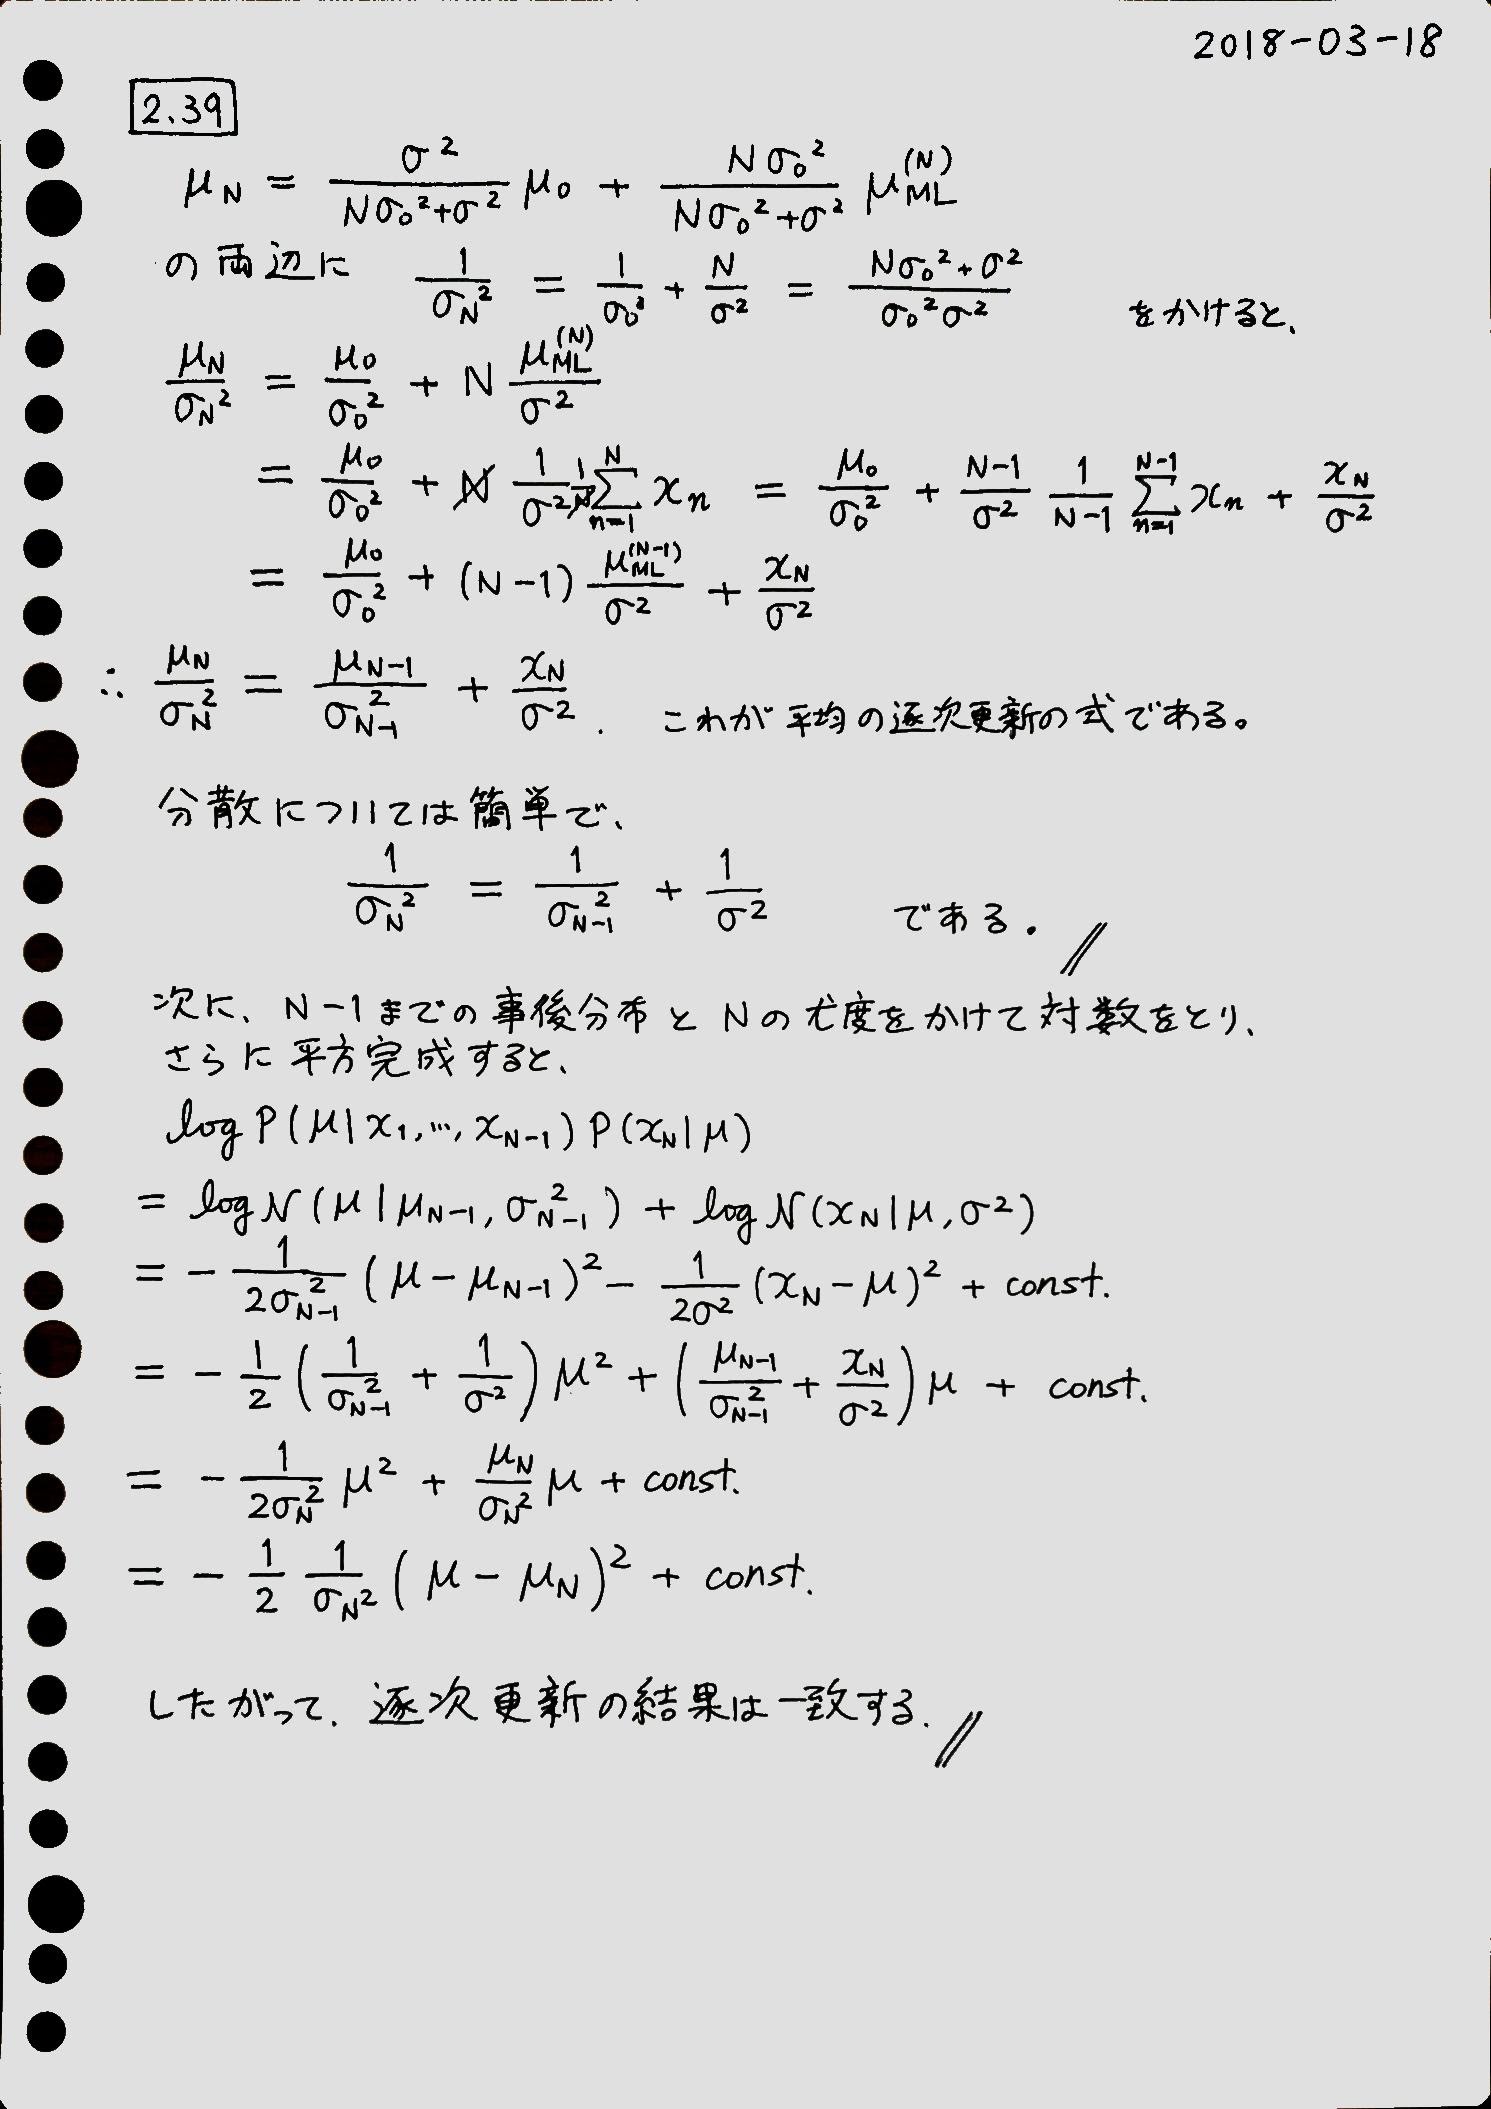 2018-03-18
2.39
μ_N = σ²/(Nσ₀²+σ²) μ₀ + Nσ₀²/(Nσ₀²+σ²) μ_ML^(N)
の両辺に 1/σ_N² = 1/σ₀² + N/σ² = (Nσ₀²+σ²)/(σ₀²σ²) をかけると、
μ_N/σ_N² = μ₀/σ₀² + N μ_ML^(N)/σ²
= μ₀/σ₀² + N 1/σ² 1/N Σ_{n=1}^{N} x_n = μ₀/σ₀² + (N-1)/σ² 1/(N-1) Σ_{n=1}^{N-1} x_n + x_N/σ²
= μ₀/σ₀² + (N-1) μ_ML^(N-1)/σ² + x_N/σ²
∴ μ_N/σ_N² = μ_{N-1}/σ_{N-1}² + x_N/σ². これが平均の逐次更新の式である。
分散については簡単で、
1/σ_N² = 1/σ_{N-1}² + 1/σ² である. //
次に、N-1までの事後分布とNの尤度をかけて対数をとり、
さらに平方完成すると、
log P(μ|x₁,…,x_{N-1}) P(x_N|μ)
= log N(μ|μ_{N-1}, σ_{N-1}²) + log N(x_N|μ, σ²)
= - 1/(2σ_{N-1}²) (μ - μ_{N-1})² - 1/(2σ²) (x_N - μ)² + const.
= - 1/2 (1/σ_{N-1}² + 1/σ²) μ² + (μ_{N-1}/σ_{N-1}² + x_N/σ²) μ + const.
= - 1/(2σ_N²) μ² + μ_N/σ_N² μ + const.
= - 1/2 1/σ_N² (μ - μ_N)² + const.
したがって、逐次更新の結果は一致する. //